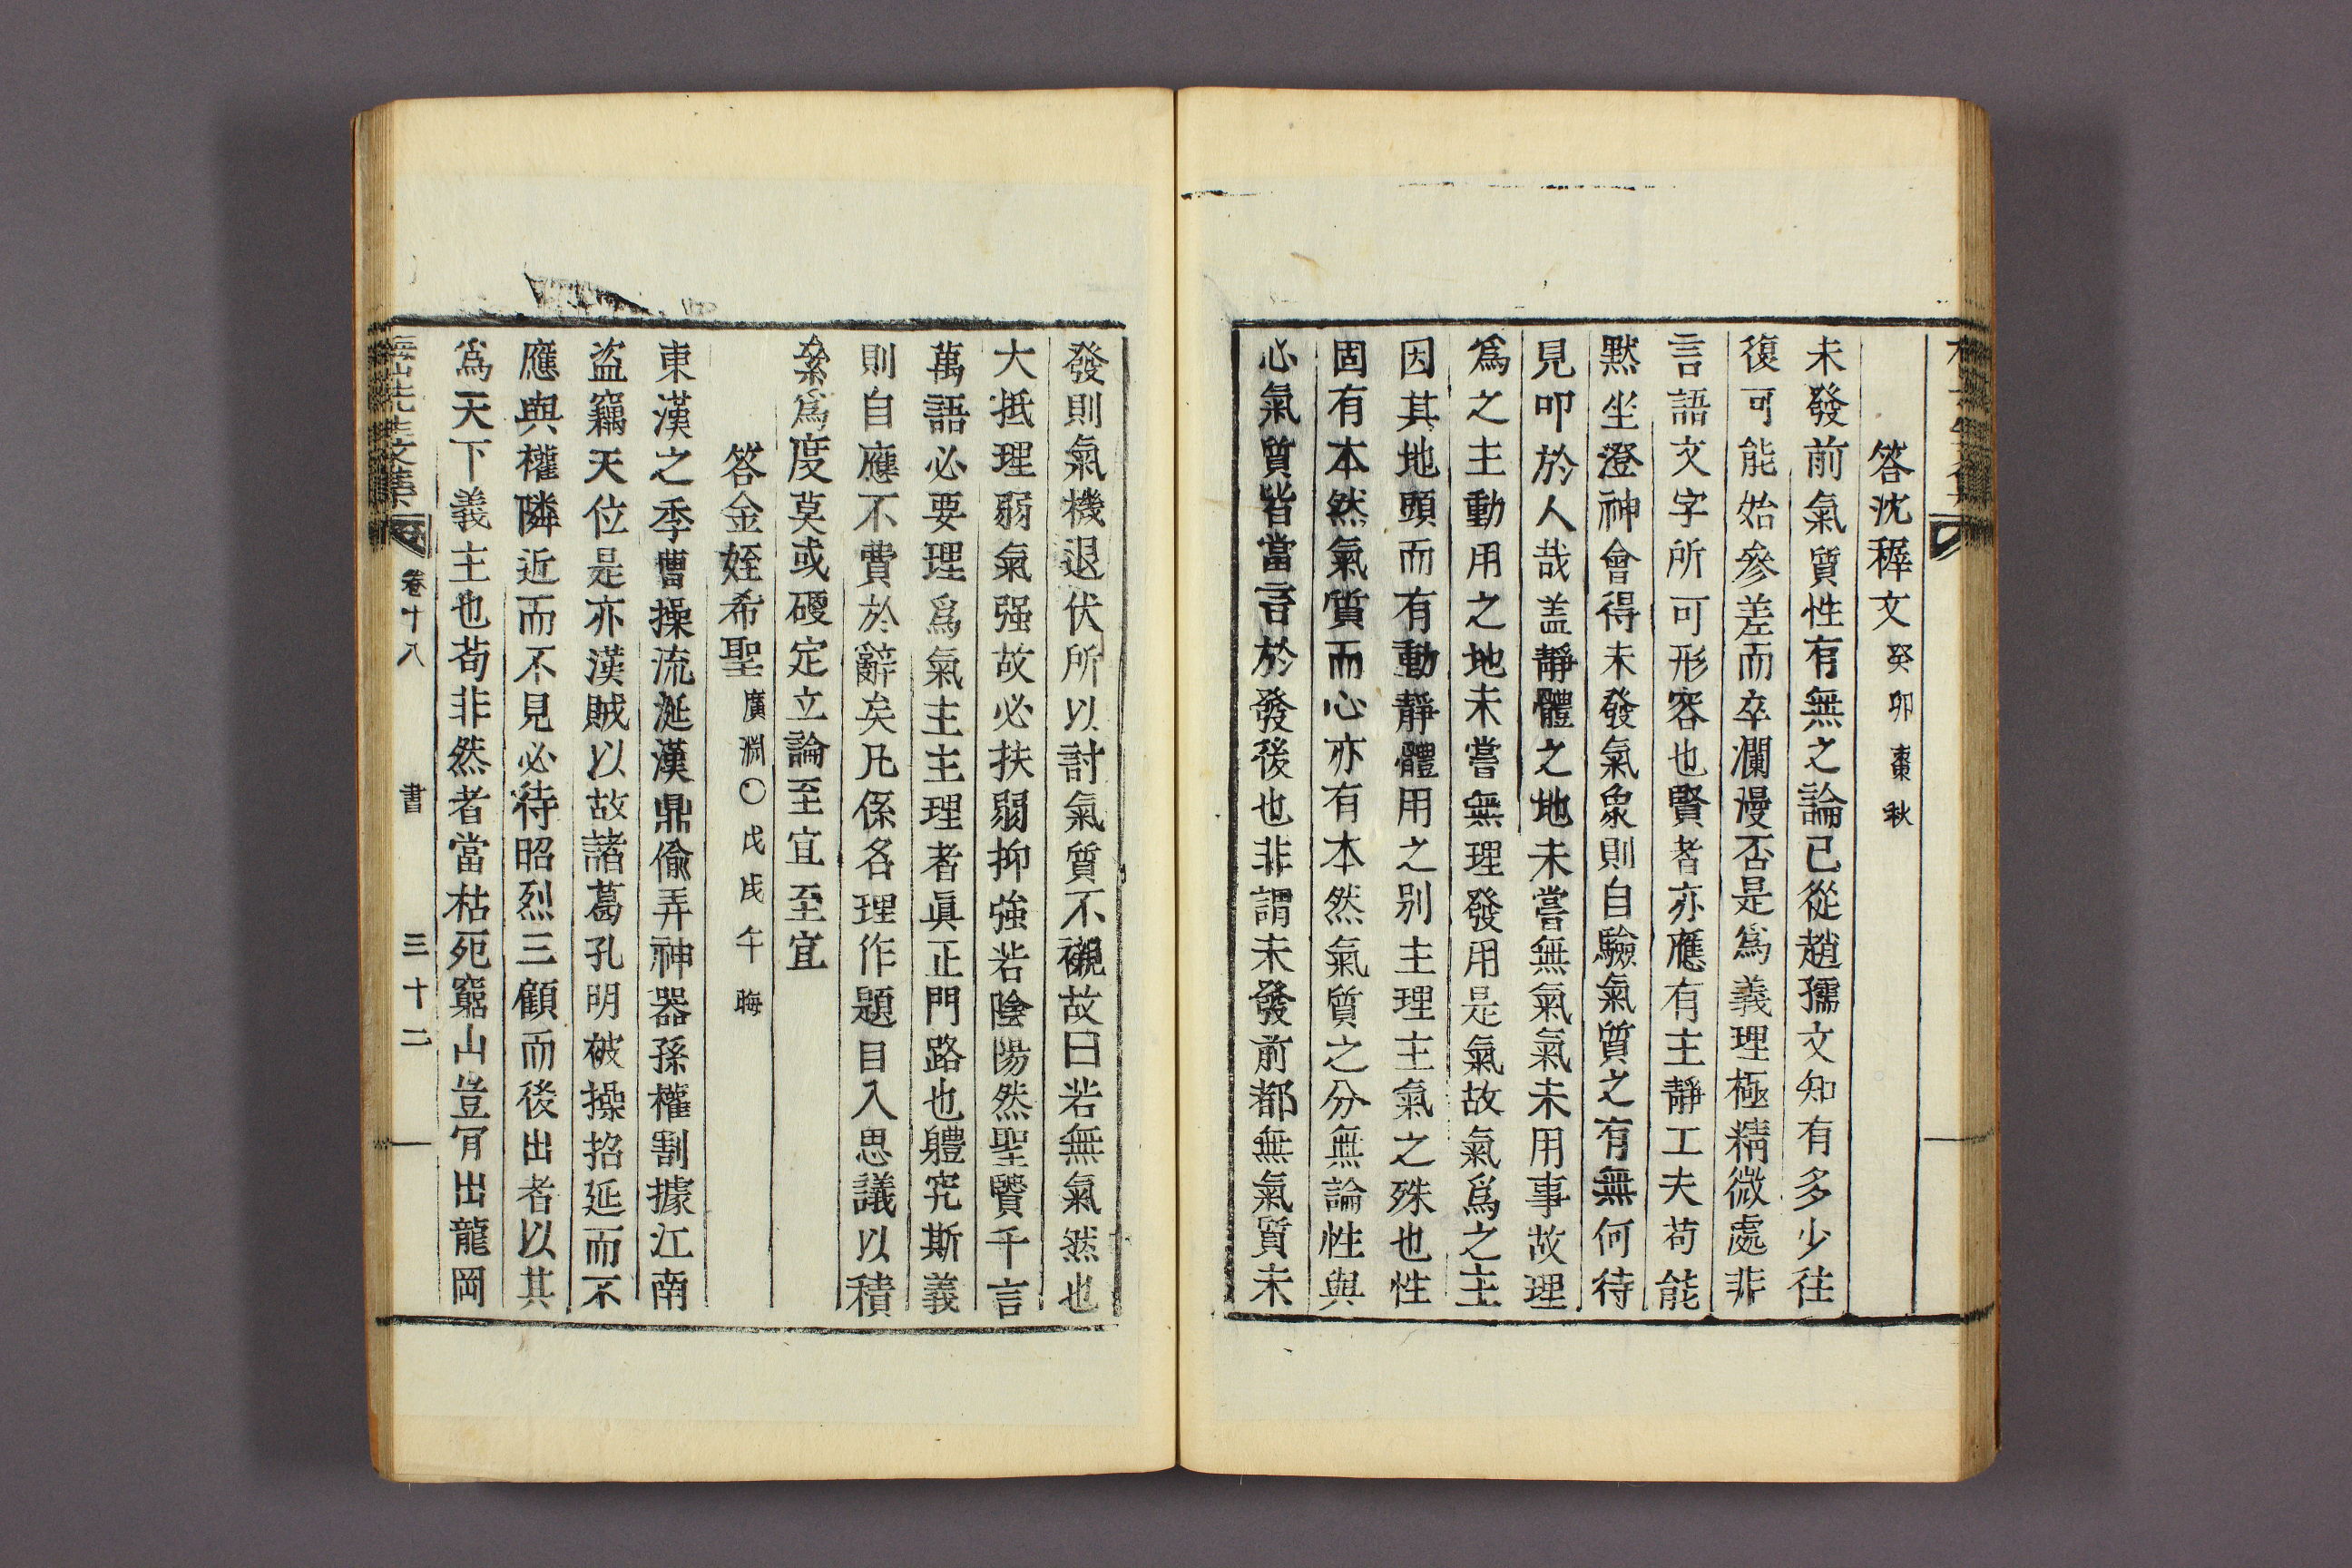 答沈穉文癸卯棗秋
未發前氣質性有無之論已從趙孺文知有多少往
復可能始參差而卒瀾漫否是爲義理極精微處非
言語文字所可形容也賢者亦應有主靜工夫苟能
默坐澄神會得未發氣象則自驗氣質之有無何待
見叩於人哉盖靜體之地未嘗無氣氣未用事故理
爲之主動用之地未嘗無理發用是氣故氣爲之主
因其地頭而有動靜體用之别主理主氣之殊也性
固有本然氣質而心亦有本然氣質之分無論性與
心氣質皆當言於發後也非謂未發前都無氣質未
發則氣機退伏所以討氣質不襯故曰若無氣然也
大抵理弱氣强故必扶弱抑強若陰陽然聖贒千言
萬語必要理爲氣主主理者眞正門路也軆究斯義
則自應不費於辭矣凡係各理作題目入思議以積
絫爲度莫或硬定立論至宜至宜
答金姪希聖廣淵〇戊戌午晦
東漢之季曹操流涎漢鼎偸弄神器孫權割據江南
盜竊天位是亦漢賊以故諸葛孔明被操招延而不
應與權隣近而不見必待昭烈三顧而後出者以其
爲天下義主也苟非然者當枯死窮山豈肎出龍岡
先生文集 卷十八 書 三十二